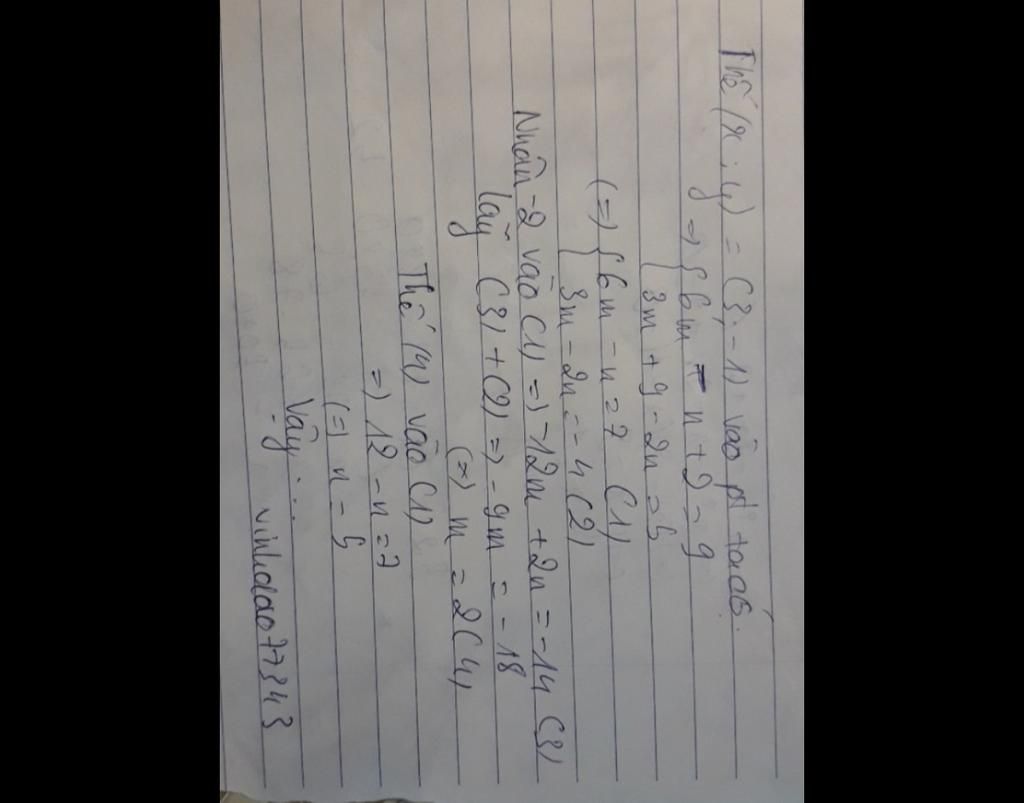 Thế (x; y) = (3; -1) vào pt ta có.
=> { 6m - n + 2 = 9
3m + 9 - 2n = 5
(=) { 6m - n = 7 (1)
3m - 2n = -4 (2)
Nhân -2 vào (1) => -12m + 2n = -14 (3)
lấy (3) + (2) => -9m = -18
(=) m = 2 (4)
Thế (4) vào (1)
=) 12 - n = 7
(=) n = 5
Vậy...
vinhdao77343